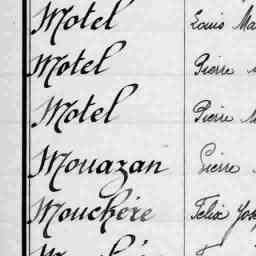 Motel Louis Ma
Motel Pierre
Motel Pierre M
Mouazan Pierre
Mouchère Félix Jos